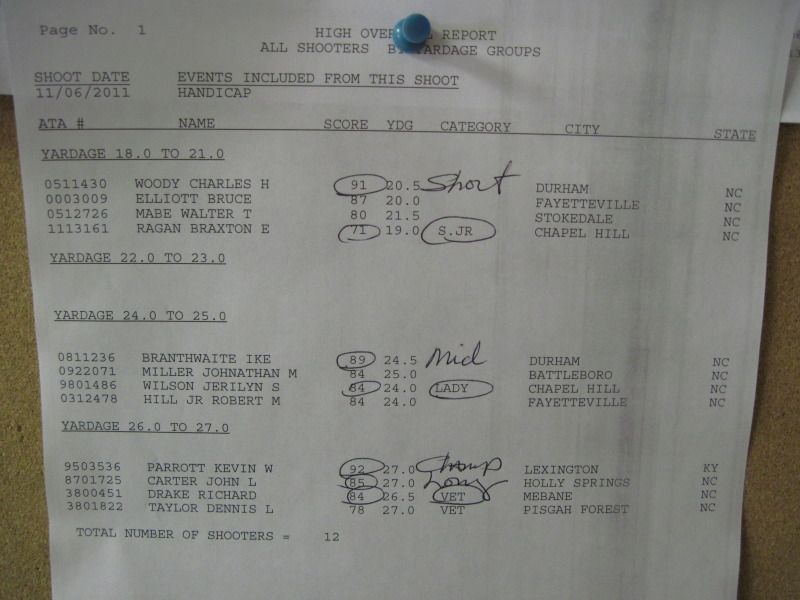 Page No. 1
HIGH OVE L REPORT
ALL SHOOTERS B YARDAGE GROUPS
SHOOT DATE EVENTS INCLUDED FROM THIS SHOOT
11/06/2011 HANDICAP
ATA # NAME SCORE YDG CATEGORY CITY STATE
YARDAGE 18.0 TO 21.0
0511430 WOODY CHARLES H 91 20.5 Short DURHAM NC
0003009 ELLIOTT BRUCE 87 20.0 FAYETTEVILLE NC
0512726 MABE WALTER T 80 21.5 STOKEDALE NC
1113161 RAGAN BRAXTON E 71 19.0 S.JR CHAPEL HILL NC
YARDAGE 22.0 TO 23.0
YARDAGE 24.0 TO 25.0
0811236 BRANTHWAITE IKE 89 24.5 Mid DURHAM NC
0922071 MILLER JOHNATHAN M 84 25.0 BATTLEBORO NC
9801486 WILSON JERILYN S 84 24.0 LADY CHAPEL HILL NC
0312478 HILL JR ROBERT M 84 24.0 FAYETTEVILLE NC
YARDAGE 26.0 TO 27.0
9503536 PARROTT KEVIN W 92 27.0 Champ LEXINGTON KY
8701725 CARTER JOHN L 85 27.0 Long HOLLY SPRINGS NC
3800451 DRAKE RICHARD 84 26.5 VET MEBANE NC
3801822 TAYLOR DENNIS L 78 27.0 VET PISGAH FOREST NC
TOTAL NUMBER OF SHOOTERS = 12